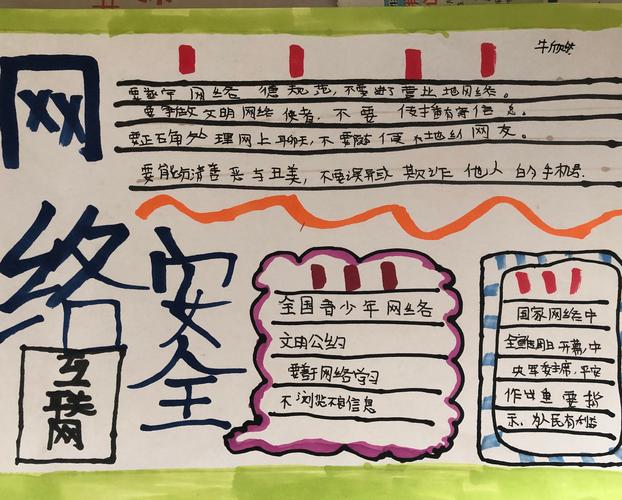 牛欣然
网络安全
要遵守网络 德规范,不要进了营业地网络。
要争做文明网络使者,不要 传播有害信息。
要正确处理网上聊天,不要随便 地约网友。
要能分清善恶与丑美,不要误导或欺诈他人的手机号.
互联网
全国青少年网络
文明公约
要善于网络学习
不浏览不良信息
国家网络中
全 周日开幕,中
央军委主席,平安
作出重要指
示,为人民有利益